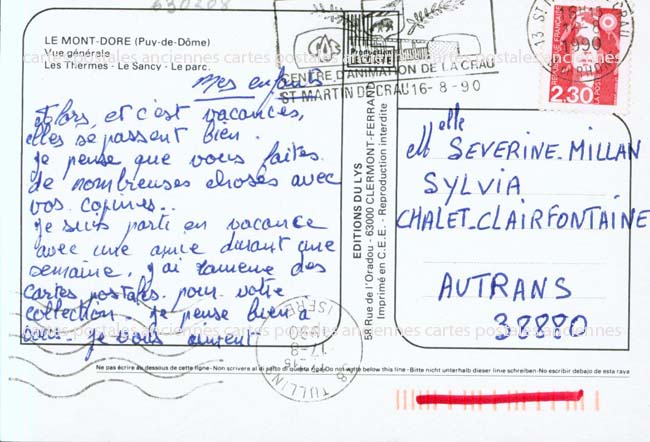 LE MONT-DORE (Puy-de-Dôme)
Vue générale
Les Thermes - Le Sancy - Le parc.
Mes enfants
Alors, et c'est vacances,
elles se passent bien.
je pense que vous faites
de nombreuses choses avec
vos copines..
je suis parti en vacance
avec une amie durant une
semaine, j'ai ramené des
cartes postales pour votre
collection. je pense bien à
vous. je vous aiment
EDITIONS DU LYS
58 Rue de l'Oradou - 63000 CLERMONT-FERRAND
Imprimé en C.E.E. - Reproduction interdite
CENTRE D'ANIMATION DE LA CRAU
ST MARTIN DE CRAU 16-8-90
13 ST M CRAU
1990
REPUBLIQUE FRANÇAISE
LA POSTE
2,30
elle
M SEVERINE-MILLAN
SYLVIA
CHALET-CLAIRFONTAINE
AUTRANS
38880
38 TULLINS
17-8
1990
ISERE
cartes postales anciennes cartes postales anciennes cartes postales anciennes
cartes postales anciennes cartes postales anciennes cartes postales anciennes
Ne pas écrire au dessous de cette ligne - Non scrivere al di sotto di questa riga - Do not write below this line - Bitte nicht unterhalb dieser linie schreiben - No escribir debajo de esta raya